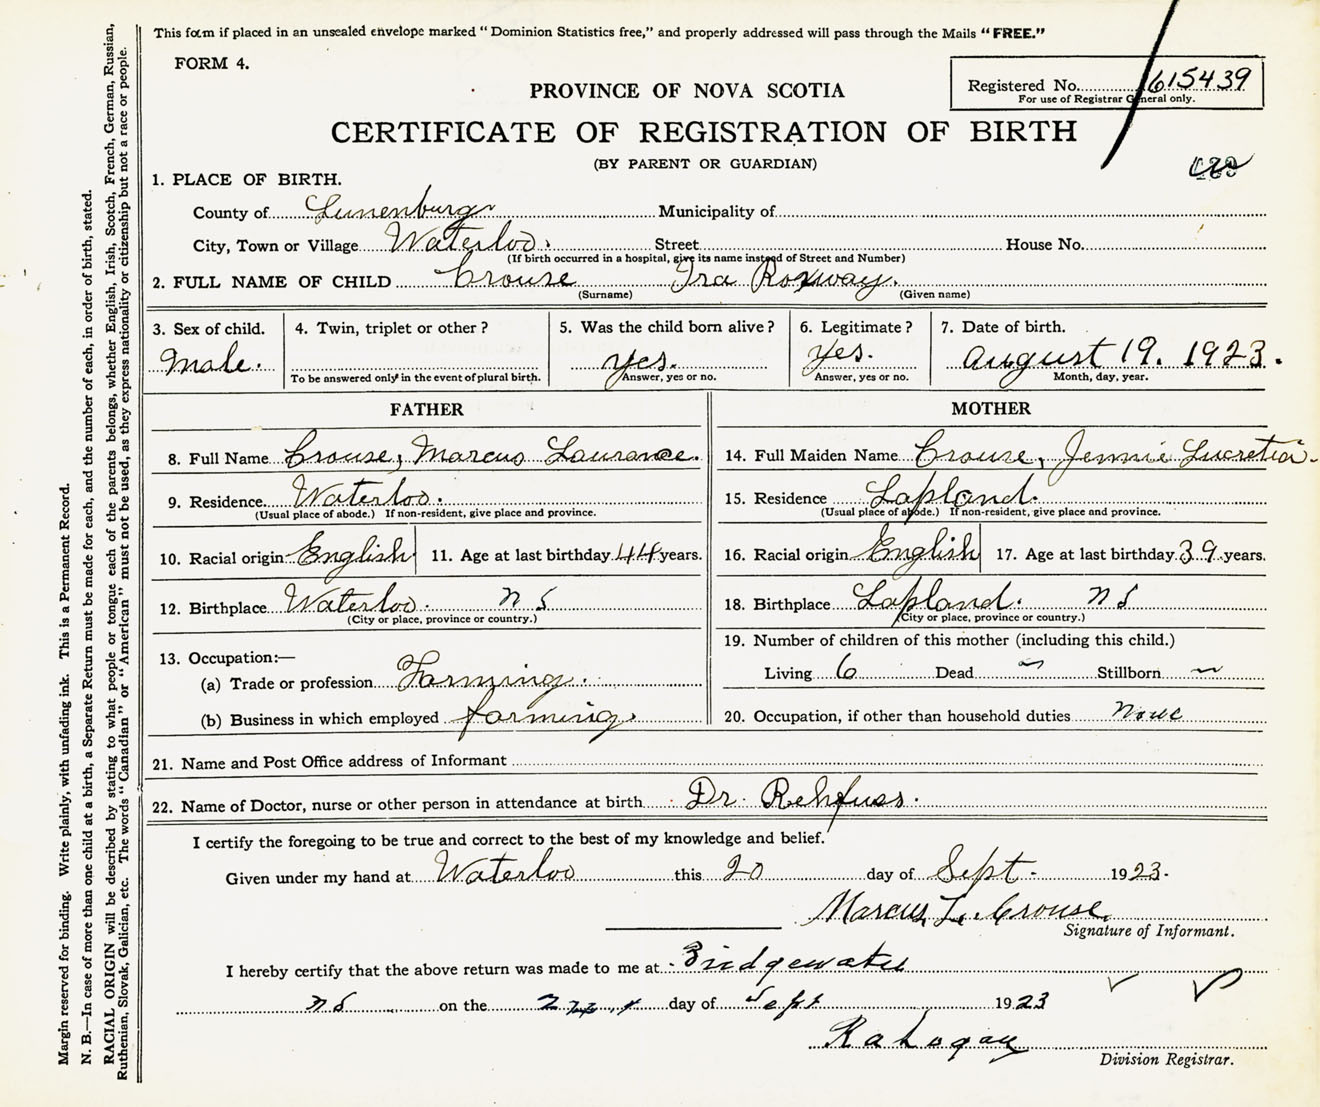 This form if placed in an unsealed envelope marked “Dominion Statistics free,” and properly addressed will pass through the Mails “FREE.”
FORM 4.
Registered No. 615439
For use of Registrar General only.
PROVINCE OF NOVA SCOTIA
CERTIFICATE OF REGISTRATION OF BIRTH
(BY PARENT OR GUARDIAN)
1. PLACE OF BIRTH.
County of Lunenburg Municipality of
City, Town or Village Waterloo. Street House No.
(If birth occurred in a hospital, give its name instead of Street and Number)
2. FULL NAME OF CHILD Crouse Ira Roxway.
(Surname) (Given name)
3. Sex of child. 4. Twin, triplet or other? 5. Was the child born alive? 6. Legitimate? 7. Date of birth.
Male. yes. yes. August 19. 1923.
To be answered only in the event of plural birth. Answer, yes or no. Answer, yes or no. Month, day, year.
FATHER MOTHER
8. Full Name Crouse, Marcus Laurance. 14. Full Maiden Name Crouse, Jennie Lucretia.
9. Residence Waterloo. 15. Residence Lapland.
(Usual place of abode.) If non-resident, give place and province. (Usual place of abode.) If non-resident, give place and province.
10. Racial origin English 11. Age at last birthday 44 years. 16. Racial origin English 17. Age at last birthday 39 years.
12. Birthplace Waterloo. N S 18. Birthplace Lapland. N S
(City or place, province or country.) (City or place, province or country.)
19. Number of children of this mother (including this child.)
13. Occupation:—
Living 6 Dead ~ Stillborn ~
(a) Trade or profession Farming.
(b) Business in which employed farming. 20. Occupation, if other than household duties None
21. Name and Post Office address of Informant
22. Name of Doctor, nurse or other person in attendance at birth Dr. Rehfuss.
I certify the foregoing to be true and correct to the best of my knowledge and belief.
Given under my hand at Waterloo this 20 day of Sept. 1923.
Marcus L. Crouse.
Signature of Informant.
I hereby certify that the above return was made to me at Bridgewater
N S on the day of Sept 1923
Division Registrar.
Margin reserved for binding. Write plainly, with unfading ink. This is a Permanent Record.
N. B.—In case of more than one child at a birth, a Separate Return must be made for each, and the number of each, in order of birth, stated.
RACIAL ORIGIN will be described by stating to what people or tongue each of the parents belongs, whether English, Irish, Scotch, French, German, Russian,
Ruthenian, Slovak, Galician, etc. The words “Canadian” or “American” must not be used, as they express nationality or citizenship but not a race or people.